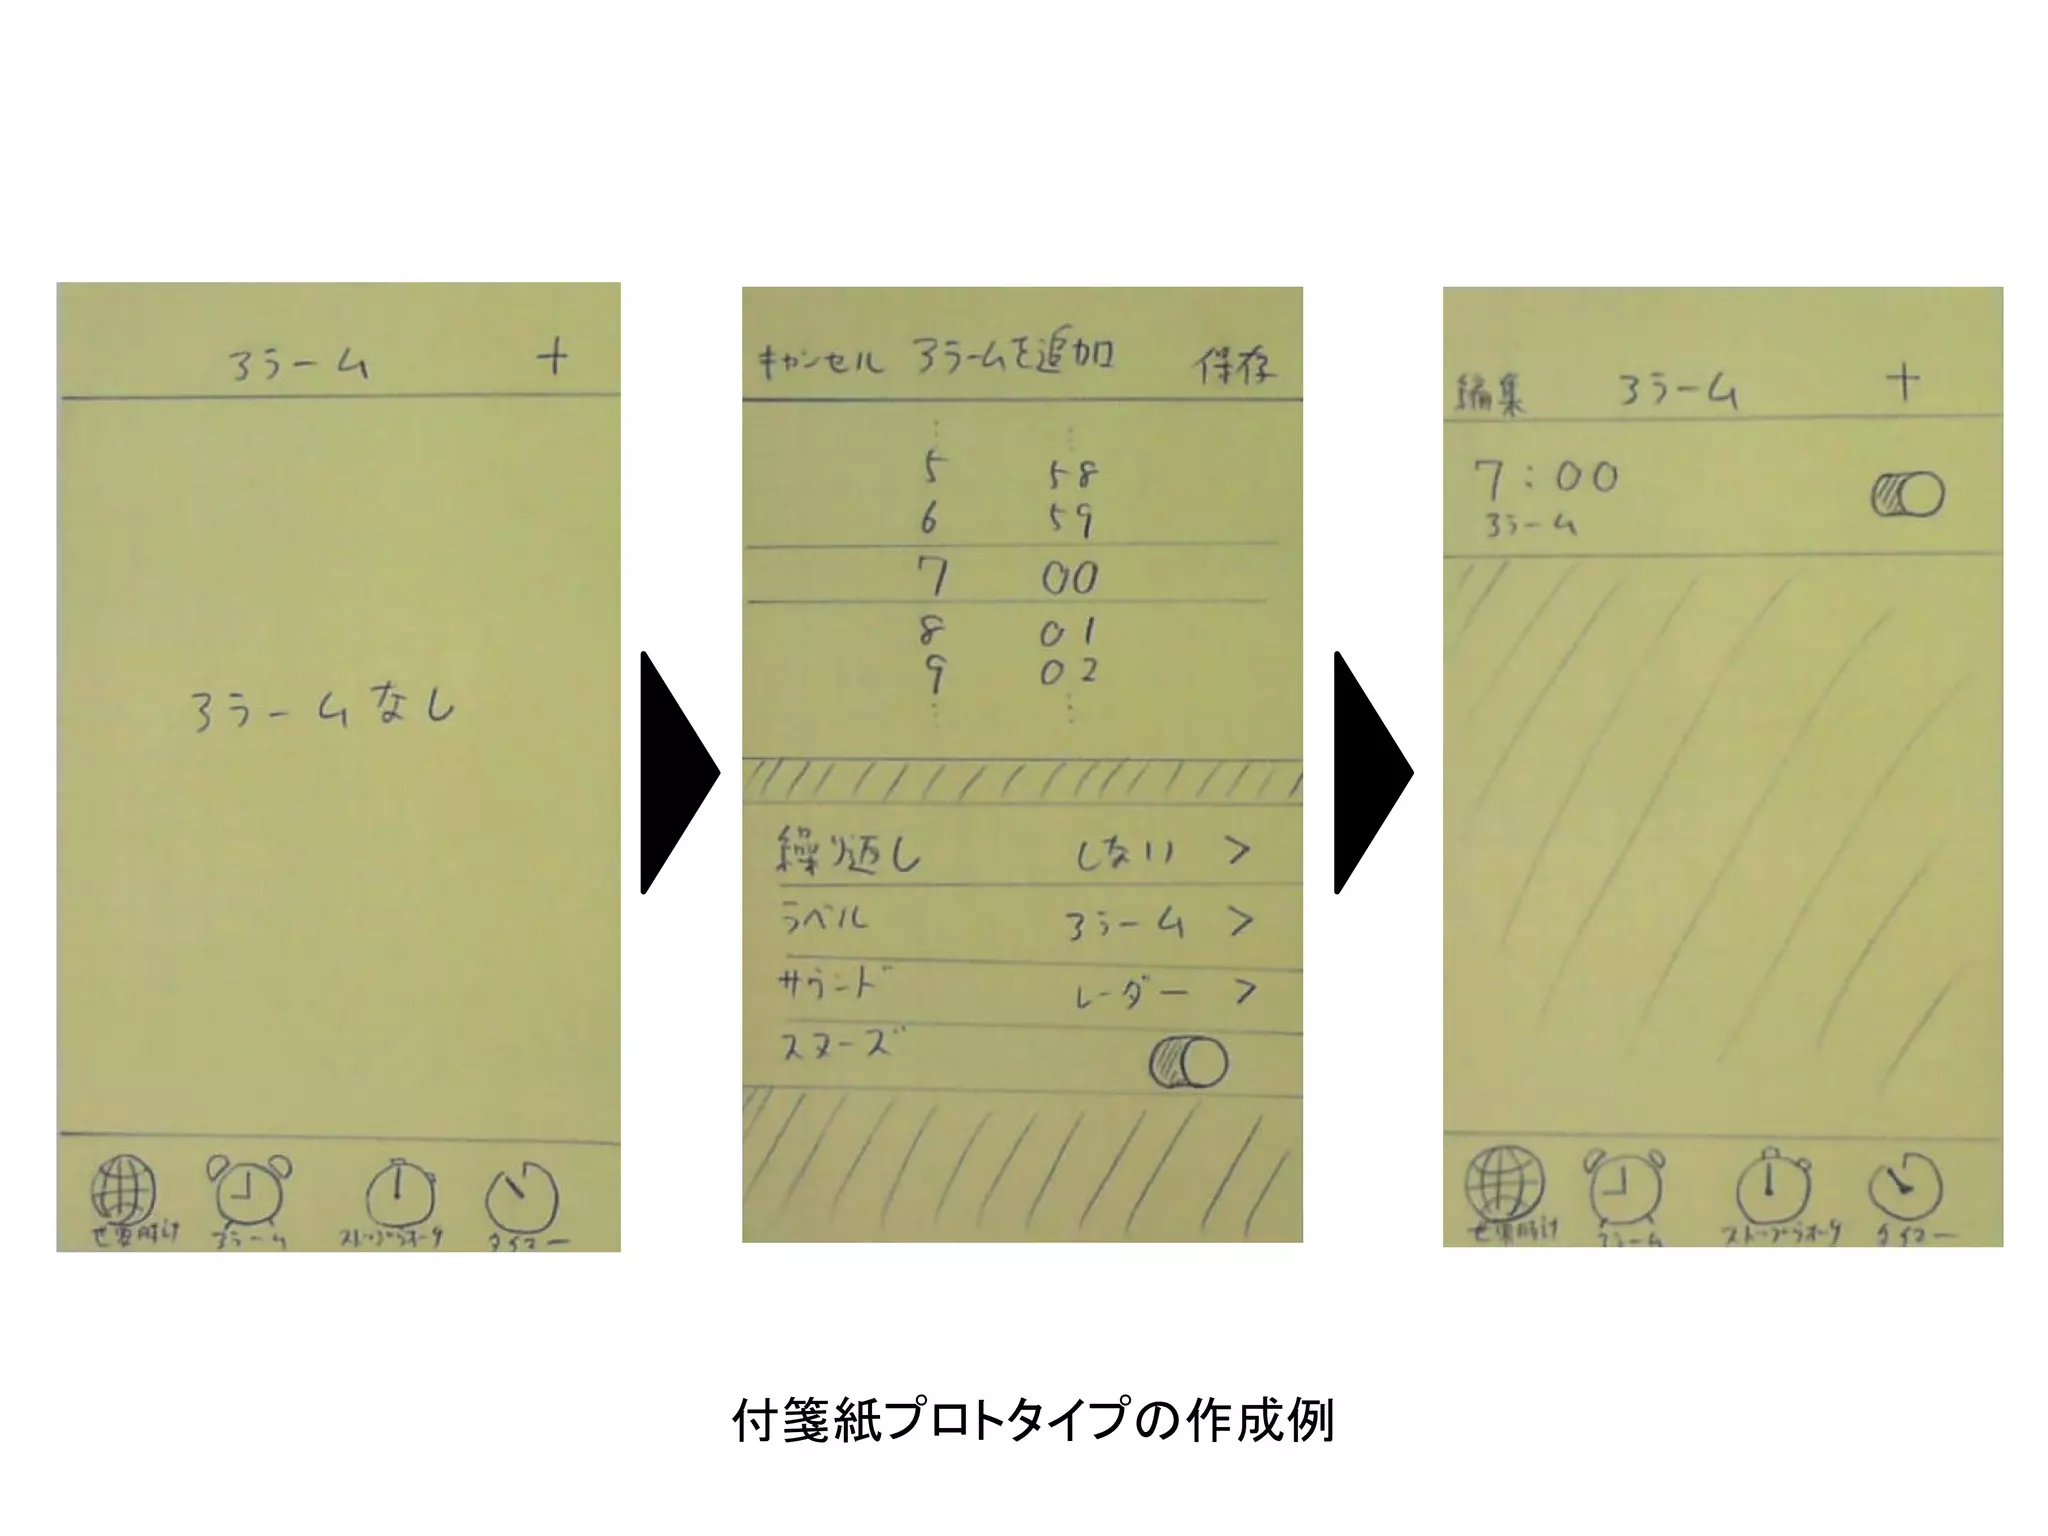 アラーム +
アラームなし
世界時計 アラーム ストップウォーク タイマー
キャンセル アラームを追加 保存
5 58
6 59
7 00
8 01
9 02
繰り返し しない >
ラベル アラーム >
サウンド レーダー >
スヌーズ
編集 アラーム +
7:00
アラーム
世界時計 アラーム ストップウォーク タイマー
付箋紙プロトタイプの作成例